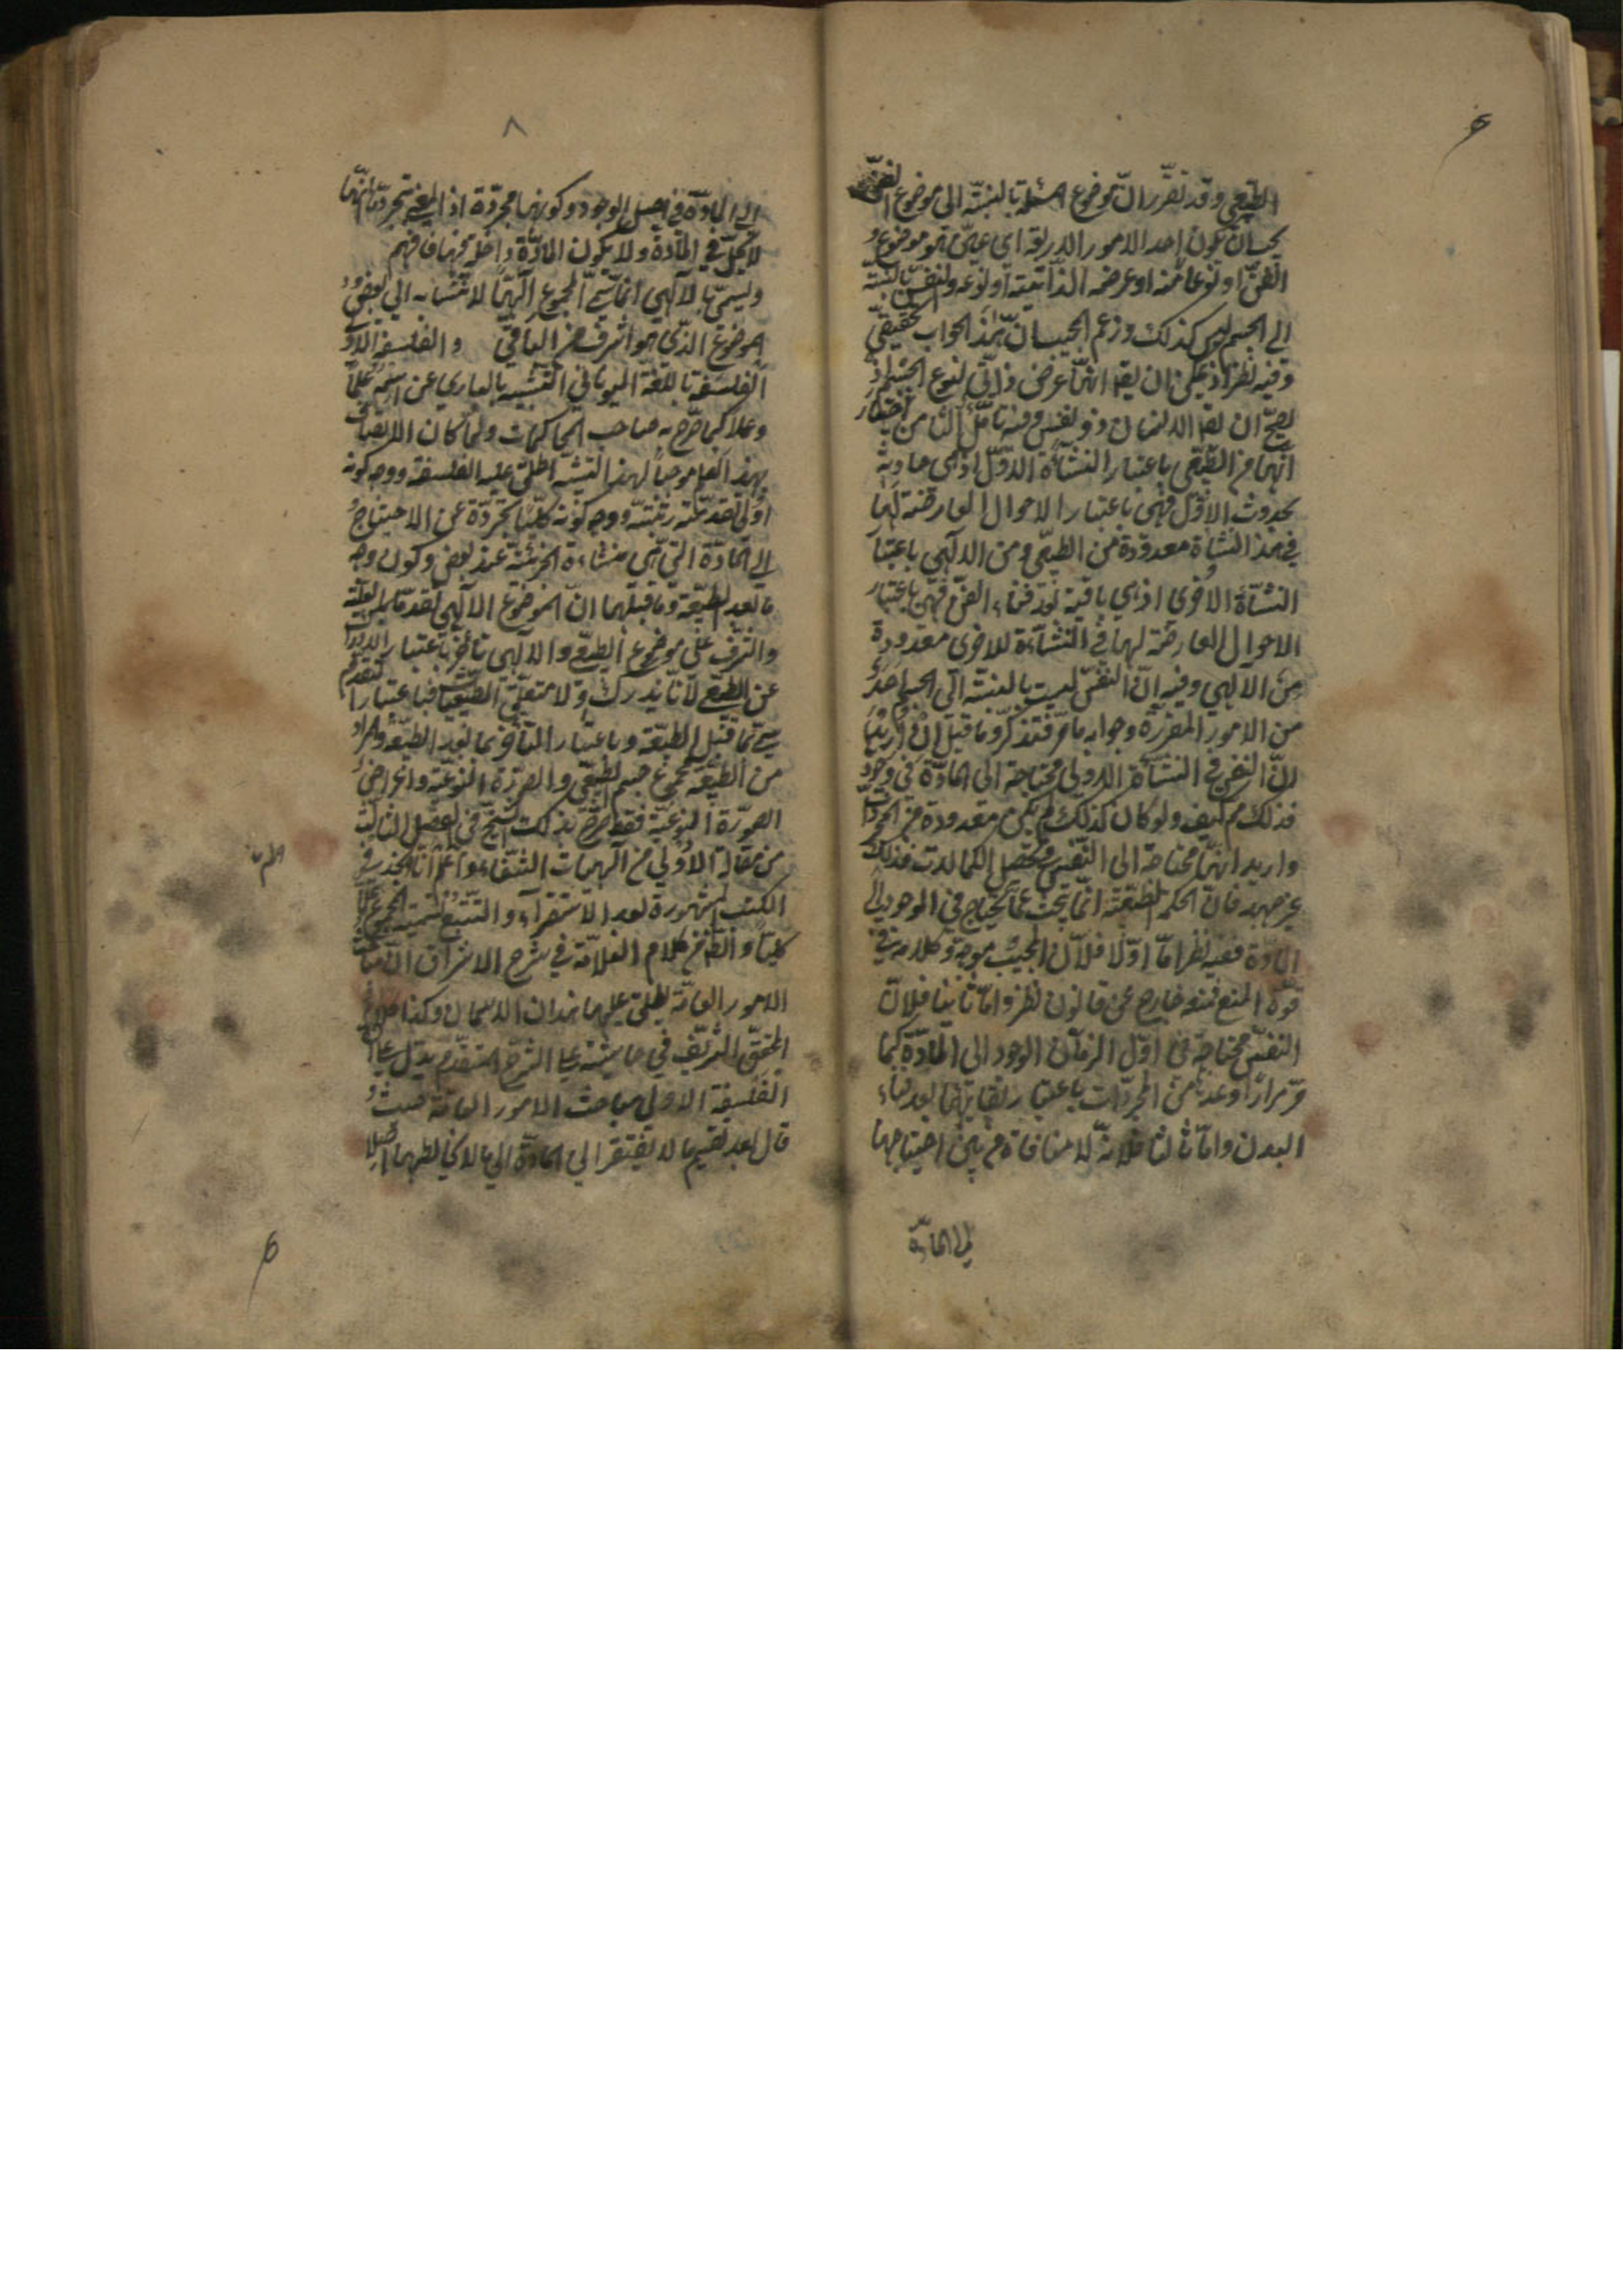 الطبعي وقد تقرر ان موضوع المسئلة بالنسبة الى موضوع الفن
يجب ان يكون احد الامور الاربعة اى عين هو موضوع
الفن او نوعا منه او عرضه الذاتية او نوعه والنفس بالنسبة
الى الجسم ليس كذلك وزعم المجيب ان هذا الجواب حقيقى
وفيه نظر اذ يمكن ان يقه انها عرض ذاتى لنوع الجسم اذ
يصح ان يقه الانسان ذو نفس وفيه تأمل الثامن اختار
انها من الطبعى باعتبار النشأة الاول اذ هى حادثة
بحدوث الاول فهى باعتبار الاحوال العارضة لها
في هذا النشاة معدودة من الطبعى ومن الالهى باعتبا
النشأة الاخرى اذ هى باقية بعد فناء الفن فهى باعتبار
الاحوال العارضة لها فى النشأة الاخرى معدودة
من الالهى وفيه ان النفس ليست بالنسبة الى الجسم احد
من الامور المقررة وجوابه ما مر فتذكر وما قيل ان اريد
ان النفس في النشأة الاولى محتاجة الى المادة فى وجود
فذلك مم كيف ولو كان كذلك لم يكن معدودة من المجردات
واريد انها محتاجة الى النفس وتحصل الكمالات فذلك
غير مهيد فان الحكمة الطبعية انما يبحث عما يحتاج في الوجود الى
المادة ففيه نظر اما اولا فلان المجيب موجه وكلامه في
قوة المنع فمنعه خارج عن قانون نظر واما ثانيا فلان
النفس محتاجة في اول الزمان الوجود الى المادة كما
مر مرارا وعدها من المجردات باعتبار بقائها بعد فناء
البدن واما ثالثا فلانه لا منافاة بين احتياجها
الى المادة
٨
الى المادة في اصل الوجود وكونها مجردة اذ المعنى تجردها انها
لا تحل في المادة ولا يكون المادة داخلة فيها فافهم
ويسمى بالالهى انما سمى المجموع الهيا لانتسابه الى بعض
موضوع الذى هو اشرف من الباقى والفلسفة الاولى
الفلسفة باللغة اليونانى التشبيه بالبارى عن اسمه علما
وعملا كما صرح به صاحب المحاكمات ولما كان الاتصاف
بهذا العلم موجبا لهذا التشبه اطلق عليه الفلسفة ووجه كونه
اولى تقدمته رتبته ووجه كونه كليا مجردة عن الاحتياج
الى المادة التى هى منشاءة الجزئية عند بعض وكون وجه
ما بعد الطبيعة وما قبلها ان الموضوع الالهى تقدما بالعلية
والشرف على موضوع الطبعى والالهى تأخر باعتبار
عن الطبعى لانا ندرك اولا متعلق الطبيعيات فباعتبار التقدم
سمى بما قبل الطبيعة وباعتبار المتأخر بما بعد الطبيعة والمراد
من الطبيعة مجموع جسم الطبعى والصورة النوعية واعراض
الصورة النوعية فقط صرح بذلك الشيخ في الفصل الثالث
من مقالة الاولى من الهيات الشفاء واعلم انا لم نجد في
الكتب المشهورة بعد الاستقراء والتتبع تسمية المجموع علما
كليا والظ من كلام العلامة في شرح الاشراق ان مباحث
الامور العامة يطلق عليها هذان الاسمان وكذا كلام
المحقق الشريف في حاشيته على الشرح المتقدم يدل على ان
الفلسفة الاولى مباحث الامور العامة حيث
قال بعد تقسيم ما لا تفتقر الى المادة الى ما لا يخالطها اصلا